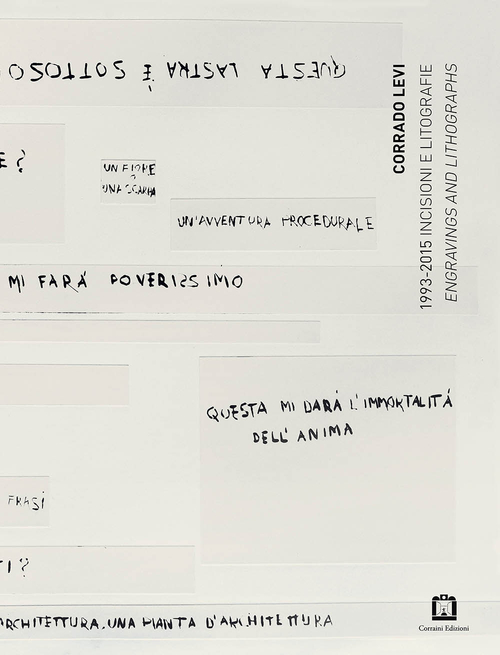 QUESTA LASTRA È SOTTOSO
E?
UN FIORE
?
UNA SCARPA
UN'AVVENTURA PROCEDURALE
MI FARÁ POVERISSIMO
QUESTA MI DARÁ L'IMMORTALITÁ
DELL' ANIMA
FRASI
TI?
ARCHITETTURA. UNA PIANTA D'ARCHITETTURA
CORRADO LEVI
1993-2015 INCISIONI E LITOGRAFIE
ENGRAVINGS AND LITHOGRAPHS
Corraini Edizioni